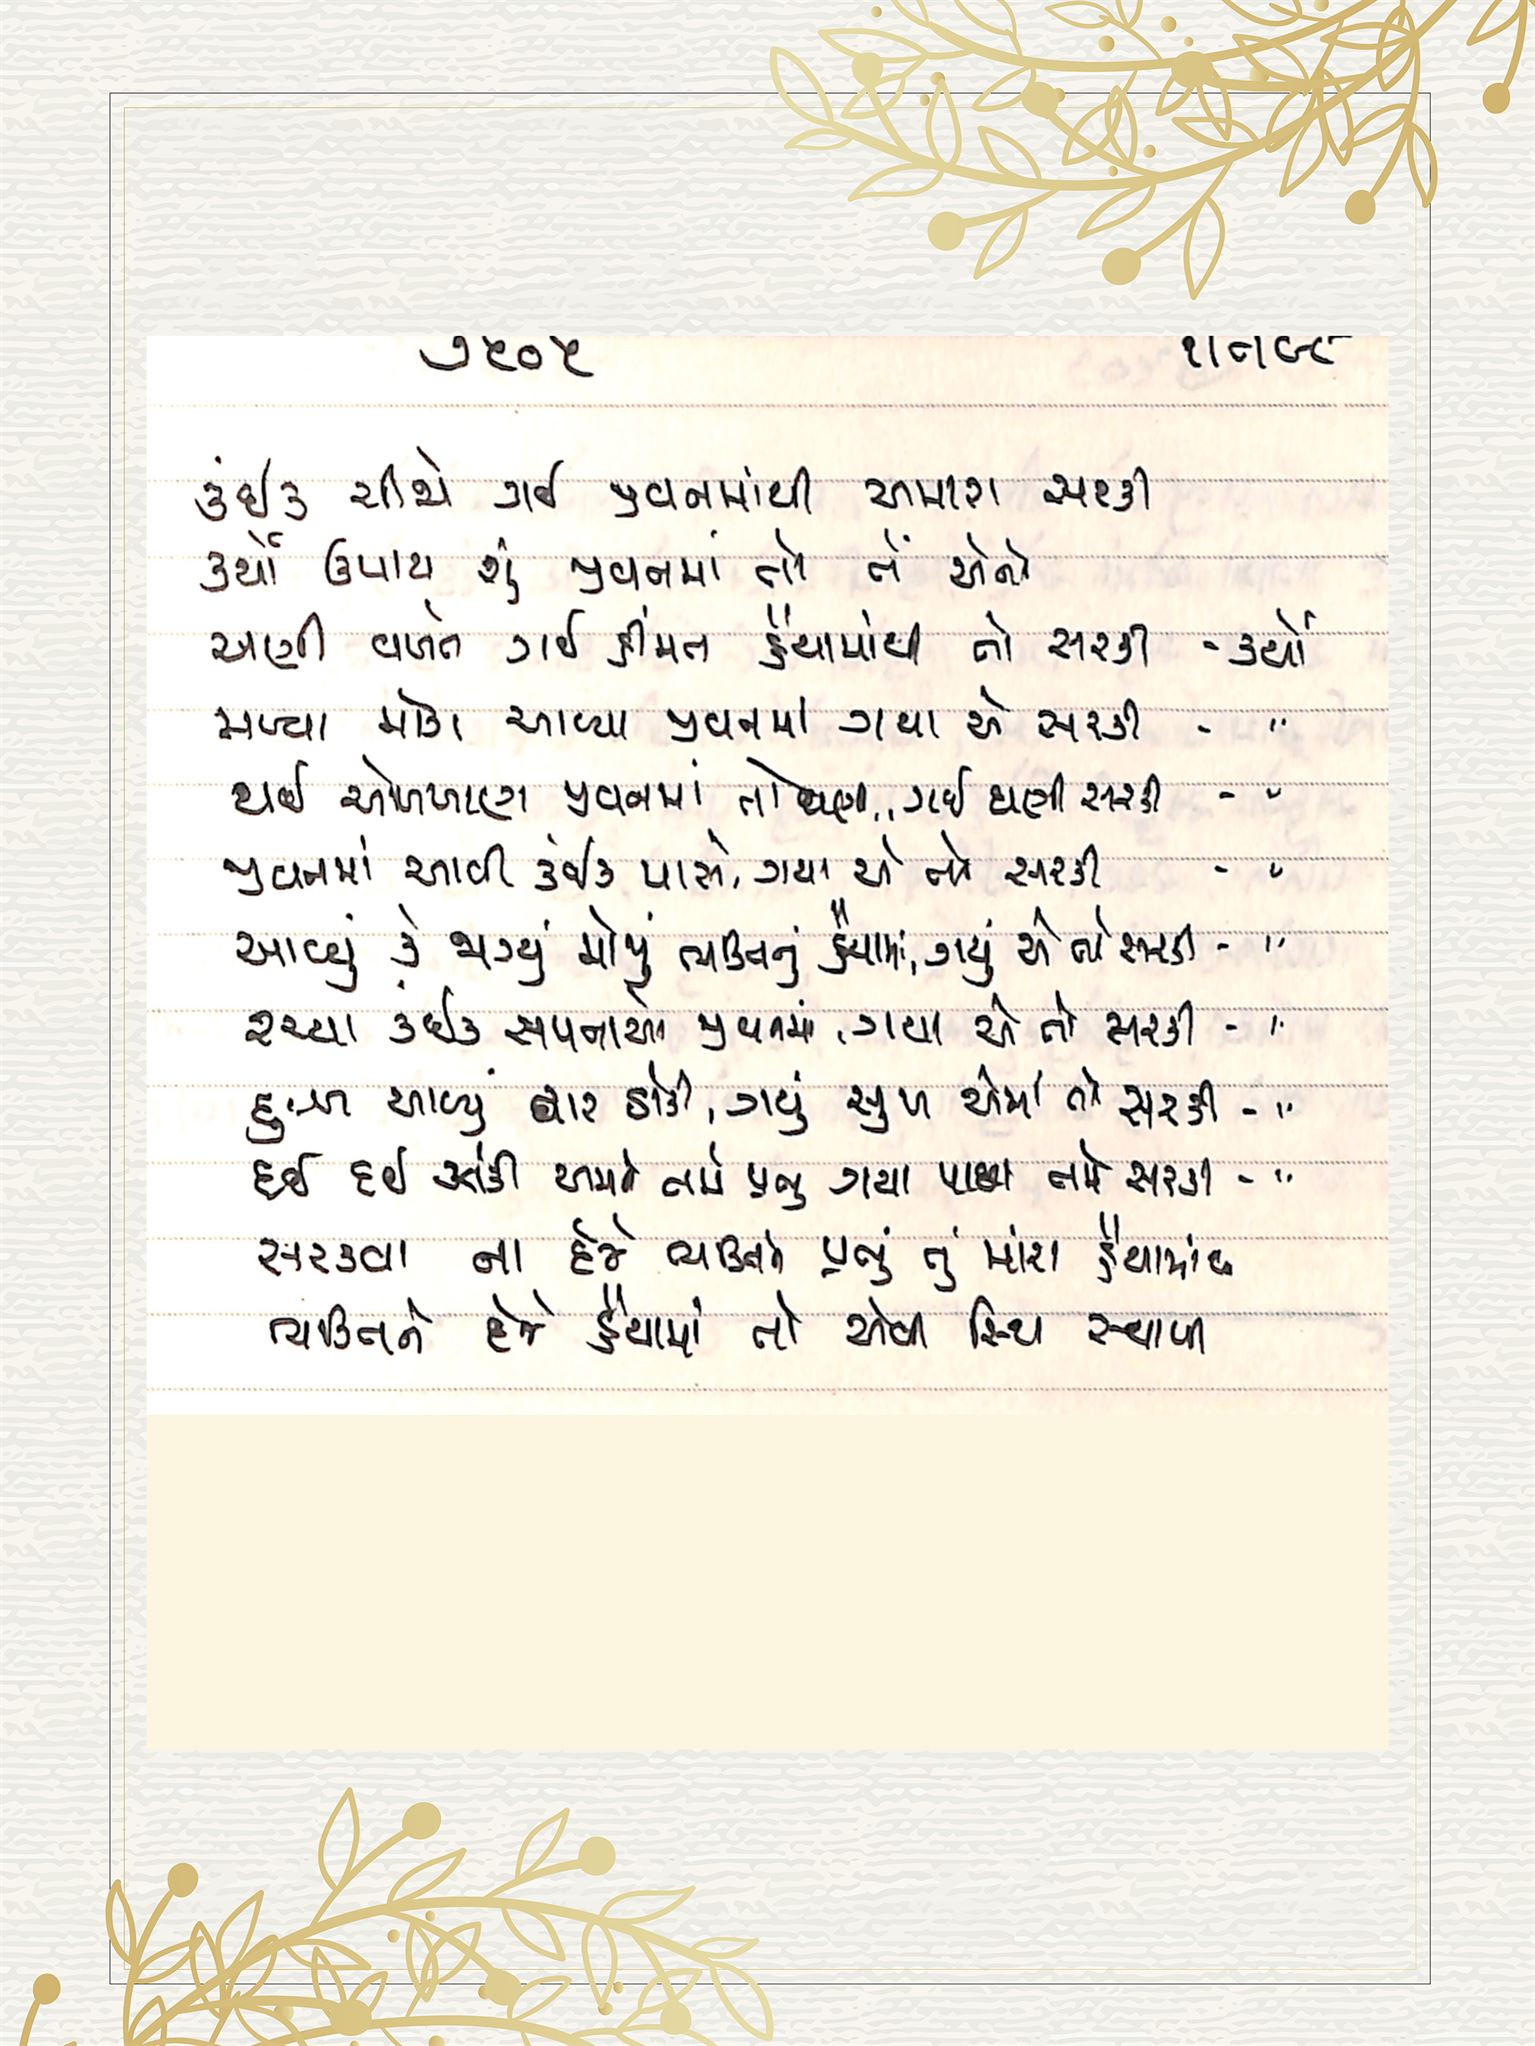 ૭૬૦૬
કંઈક ચીજો ગઈ જીવનમાંથી અમારા સરકી
કર્યો ઉપાય શું જીવનમાં તો તેં એનો
અણી વખતે ગઈ હીંમત હૈંયામાંથી તો સરકી - કર્યો
મળ્યા મોકા આવ્યા જીવનમાં ગયા એ સરકી - "
થઈ ઓળખાણ જીવનમાં તો ઘણી, ગઈ ઘણી સરકી - "
જીવનમાં આવી કંઈક પાસે, ગયા એ તો સરકી - "
આવ્યું કે જાગ્યું મોજું ભક્તિનું હૈંયામાં, ગયું એ તો સરકી - "
રચ્યા કંઈક સપનાઓ જીવનમાં, ગયા એ તો સરકી - "
દુઃખ આવ્યું દ્વાર ઠોકી, ગયું સુખ એમાં તો સરકી - "
દઈ દઈ ઝાંકી અમને તમે પ્રભુ ગયા પાછા તમે સરકી - "
સરકવા ના દેજે ભક્તિને પ્રભું તું મારા હૈંયામાંથી
ભક્તિને દેજે હૈંયામાં તો એવી સ્થિર સ્થાપી